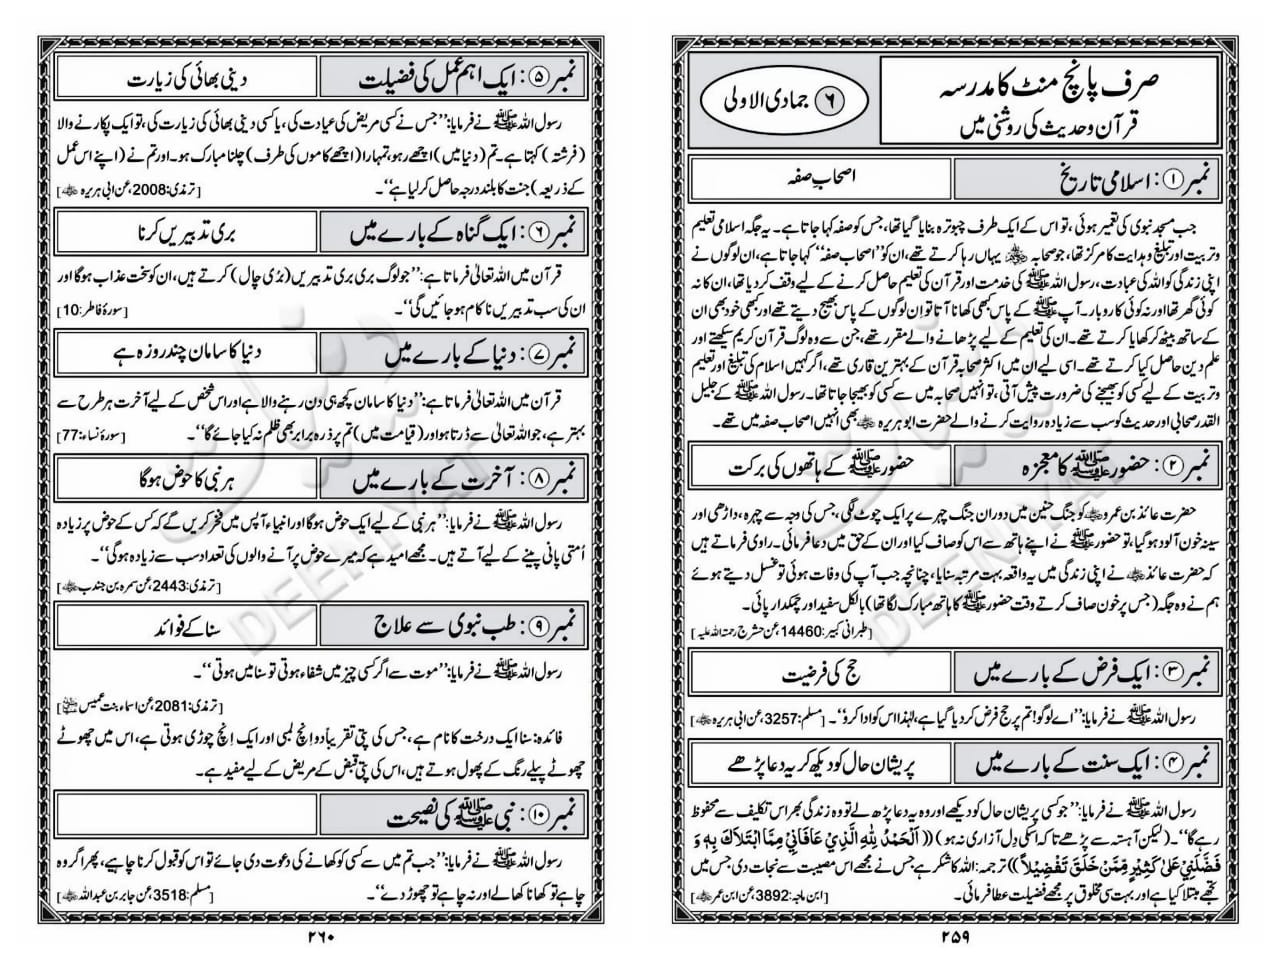 صرف پانچ منٹ کا مدرسہ
قرآن و حدیث کی روشنی میں
۶ جمادی الاولیٰ
نمبر ①: اسلامی تاریخ
اصحابِ صفہ
جب مسجد نبوی کی تعمیر ہوئی، تو اس کے ایک طرف چبوترہ بنایا گیا تھا، جس کو صفہ کہا جاتا ہے۔ یہ جگہ اسلامی تعلیم
و تربیت اور تبلیغ و ہدایت کا مرکز تھا، جو صحابہ ﷺ یہاں رہا کرتے تھے، ان کو ”اصحاب صفہ“ کہا جاتا ہے، ان لوگوں نے
اپنی زندگی کو اللہ کی عبادت، رسول اللہ ﷺ کی خدمت اور قرآن کی تعلیم حاصل کرنے کے لیے وقف کر دیا تھا، ان کا نہ
کوئی گھر تھا اور نہ کوئی کاروبار۔ آپ ﷺ کے پاس کبھی کھانا آتا تو ان لوگوں کے پاس بھیج دیتے تھے اور کبھی خود بھی ان
کے ساتھ بیٹھ کر کھایا کرتے تھے۔ ان کی تعلیم کے لیے پڑھانے والے مقرر تھے، جن سے وہ لوگ قرآن کریم سیکھتے اور
علم دین حاصل کیا کرتے تھے۔ اسی لیے ان میں اکثر صحابہ قرآن کے بہترین قاری تھے، اگر کہیں اسلام کی تبلیغ اور تعلیم
و تربیت کے لیے کسی کو بھیجنے کی ضرورت پیش آتی، تو انہیں صحابہ میں سے کسی کو بھیجا جاتا تھا۔ رسول اللہ ﷺ کے جلیل
القدر صحابی اور حدیث کو سب سے زیادہ روایت کرنے والے حضرت ابو ہریرہ ؓ بھی انہیں اصحاب صفہ میں تھے۔
نمبر ②: حضور ﷺ کا معجزہ
حضور ﷺ کے ہاتھوں کی برکت
حضرت عائذ بن عمرو ؓ کو جنگ حنین میں دوران جنگ چہرے پر ایک چوٹ لگی، جس کی وجہ سے چہرہ، داڑھی اور
سینہ خون آلود ہو گیا، تو حضور ﷺ نے اپنے ہاتھ سے اس کو صاف کیا اور ان کے حق میں دعا فرمائی۔ راوی فرماتے ہیں
کہ حضرت عائذ ؓ نے اپنی زندگی میں یہ واقعہ بہت مرتبہ سنایا، چنانچہ جب آپ کی وفات ہوئی تو غسل دیتے ہوئے
ہم نے وہ جگہ (جس پر خون صاف کرتے وقت حضور ﷺ کا ہاتھ مبارک لگا تھا) بالکل سفید اور چمکدار پائی۔
[طبرانی کبیر: 14460، عن حشرج رحمۃ اللہ علیہ]
نمبر ③: ایک فرض کے بارے میں
حج کی فرضیت
رسول اللہ ﷺ نے فرمایا: ”اے لوگو! تم پر حج فرض کر دیا گیا ہے، لہٰذا اس کو ادا کرو“۔ [مسلم: 3257، عن ابی ہریرہ ؓ]
نمبر ④: ایک سنت کے بارے میں
پریشان حال کو دیکھ کر یہ دعا پڑھے
رسول اللہ ﷺ نے فرمایا: ”جو کسی پریشان حال کو دیکھے اور وہ یہ دعا پڑھ لے تو وہ زندگی بھر اس تکلیف سے محفوظ
رہے گا“۔ (لیکن آہستہ سے پڑھے تا کہ اسکی دل آزاری نہ ہو) ((اَلْحَمْدُ لِلّٰهِ الَّذِيْ عَافَانِيْ مِمَّا ابْتَلَاكَ بِهٖ وَ
فَضَّلَنِيْ عَلٰى كَثِيْرٍ مِّمَّنْ خَلَقَ تَفْضِيْلاً)) ترجمہ: اللہ کا شکر ہے جس نے مجھے اس مصیبت سے نجات دی جس میں
تجھے مبتلا کیا ہے اور بہت سی مخلوق پر مجھے فضیلت عطا فرمائی۔ [ابن ماجہ: 3892، عن ابن عمر ؓ]
۲۵۹
نمبر ⑤: ایک اہم عمل کی فضیلت
دینی بھائی کی زیارت
رسول اللہ ﷺ نے فرمایا: ”جس نے کسی مریض کی عیادت کی، یا کسی دینی بھائی کی زیارت کی، تو ایک پکارنے والا
(فرشتہ) کہتا ہے۔ تم (دنیا میں) اچھے رہو، تمہارا (اچھے کاموں کی طرف) چلنا مبارک ہو۔ اور تم نے (اپنے اس عمل
کے ذریعہ) جنت کا بلند درجہ حاصل کر لیا ہے“۔ [ترمذی: 2008، عن ابی ہریرہ ؓ]
نمبر ⑥: ایک گناہ کے بارے میں
بری تدبیریں کرنا
قرآن میں اللہ تعالیٰ فرماتا ہے: ”جو لوگ بری بری تدبیریں (بڑی چال) کرتے ہیں، ان کو سخت عذاب ہو گا اور
ان کی سب تدبیریں ناکام ہو جائیں گی“۔ [سورۂ فاطر: 10]
نمبر ⑦: دنیا کے بارے میں
دنیا کا سامان چند روزہ ہے
قرآن میں اللہ تعالیٰ فرماتا ہے: ”دنیا کا سامان کچھ ہی دن رہنے والا ہے اور اس شخص کے لیے آخرت ہر طرح سے
بہتر ہے، جو اللہ تعالیٰ سے ڈرتا ہو اور (قیامت میں) تم پر ذرہ برابر بھی ظلم نہ کیا جائے گا“۔ [سورۂ نساء: 77]
نمبر ⑧: آخرت کے بارے میں
ہر نبی کا حوض ہو گا
رسول اللہ ﷺ نے فرمایا: ”ہر نبی کے لیے ایک حوض ہو گا اور انبیاء، آپس میں فخر کریں گے کہ کس کے حوض پر زیادہ
اُمتی پانی پینے کے لیے آتے ہیں۔ مجھے امید ہے کہ میرے حوض پر آنے والوں کی تعداد سب سے زیادہ ہو گی“۔
[ترمذی: 2443، عن سمرہ بن جندب ؓ]
نمبر ⑨: طب نبوی سے علاج
سنا کے فوائد
رسول اللہ ﷺ نے فرمایا: ”موت سے اگر کسی چیز میں شفاء ہوتی تو سنا میں ہوتی“۔
[ترمذی: 2081، عن اسماء بنت عمیس ؓ]
فائدہ: سنا ایک درخت کا نام ہے، جس کی پتی تقریباً دو اِنچ لمبی اور ایک اِنچ چوڑی ہوتی ہے، اس میں چھوٹے
چھوٹے پیلے رنگ کے پھول ہوتے ہیں، اس کی پتی قبض کے مریض کے لیے مفید ہے۔
نمبر ⑩: نبی ﷺ کی نصیحت
رسول اللہ ﷺ نے فرمایا: ”جب تم میں سے کسی کو کھانے کی دعوت دی جائے تو اس کو قبول کرنا چاہیے، پھر اگر وہ
چاہے تو کھانا کھالے اور نہ چاہے تو چھوڑ دے“۔ [مسلم: 3518، عن جابر بن عبداللہ ؓ]
۲۶۰
دینیات
DEENIYAT
دینیات
DEENIYAT